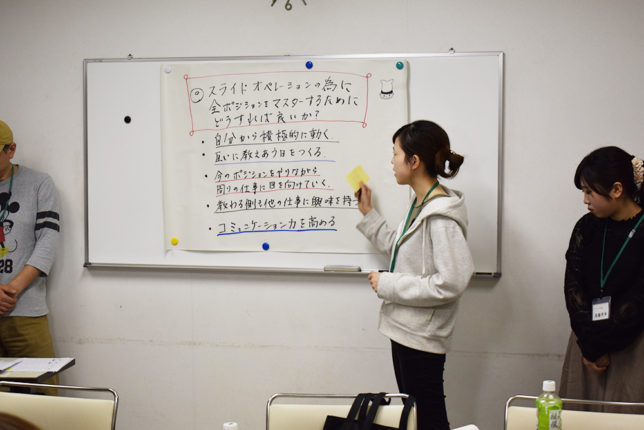 スライドオペレーションの為に
全ポジションをマスターするために
どうすれば良いか?
・自分から積極的に動く
・互いに教えあう日をつくる
・今のポジションをやりながら
周りの仕事に目を向けていく
・教わる側も他の仕事に興味を持
・コミュニケーション力を高める
28